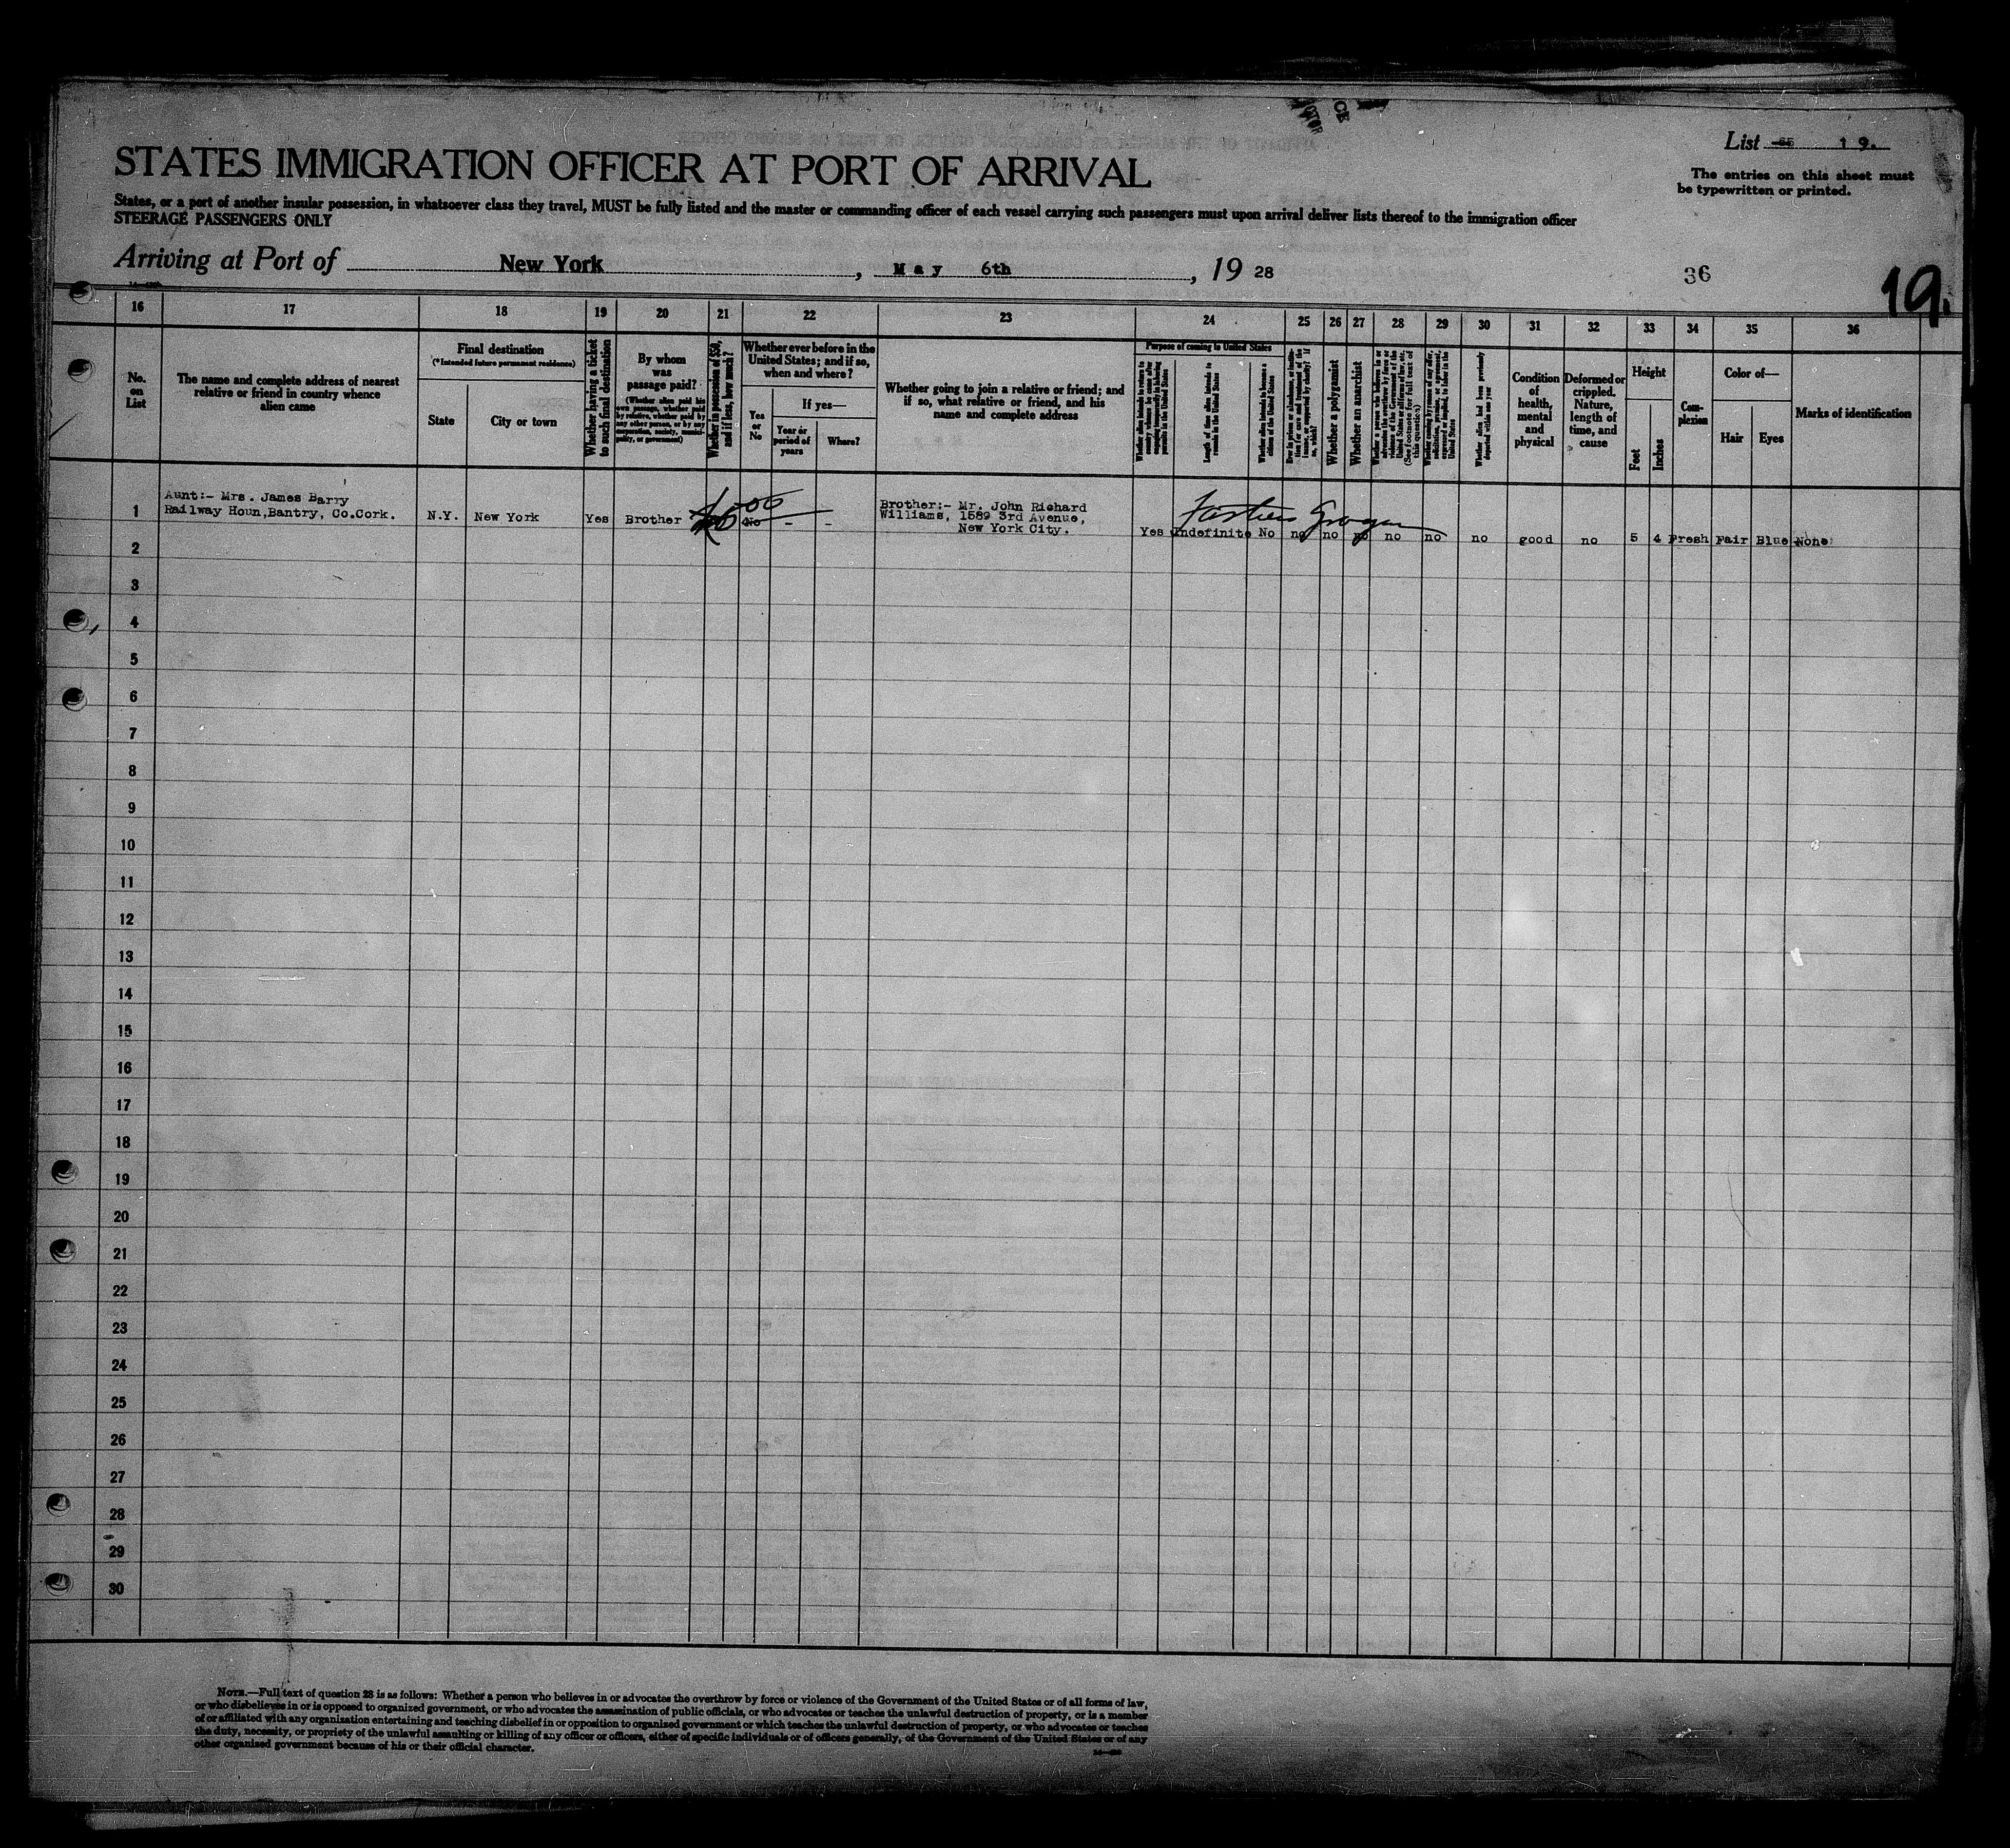 List 65 19.
The entries on this sheet must
be typewritten or printed.
STATES IMMIGRATION OFFICER AT PORT OF ARRIVAL
States, or a port of another insular possession, in whatsoever class they travel, MUST be fully listed and the master or commanding officer of each vessel carrying such passengers must upon arrival deliver lists thereof to the immigration officer
STEERAGE PASSENGERS ONLY
Arriving at Port of New York, May 6th, 19 28
36
19.
16 17 18 19 20 21 22 23 24 25 26 27 28 29 30 31 32 33 34 35 36
No.
on
List
The name and complete address of nearest
relative or friend in country whence
alien came
Final destination
(*Intended future permanent residence)
State
City or town
Whether having a ticket
to such final destination
By whom
was
passage paid?
(Whether alien paid his
own passage, whether paid
by relative, whether paid by
any other person, or by any
corporation, society, munici-
pality, or government)
Whether in possession of $50,
and if less, how much?
Whether ever before in the
United States; and if so,
when and where?
Yes
or
No
If yes—
Year or
period of
years
Where?
Whether going to join a relative or friend; and
if so, what relative or friend, and his
name and complete address
Purpose of coming to United States
Whether alien intends to return to
country whence he came after
engaging temporarily in laboring
pursuits in the United States
Length of time alien intends to
remain in the United States
Whether alien intends to become a
citizen of the United States
Whether a polygamist
Whether an anarchist
Whether alien had been previously
deported within one year
Condition
of
health,
mental
and
physical
Deformed or
crippled.
Nature,
length of
time, and
cause
Height
Feet
Inches
Com-
plexion
Color of—
Hair
Eyes
Marks of identification
1
Aunt:- Mrs. James Barry
Railway Houn,Bantry, Co.Cork.
N.Y. New York Yes Brother No - -
Brother:- Mr. John Richard
Williams, 1589 3rd Avenue,
New York City.
Yes Undefinite No no no no no no no good no 5 4 Fresh Fair Blue None
2
3
4
5
6
7
8
9
10
11
12
13
14
15
16
17
18
19
20
21
22
23
24
25
26
27
28
29
30
NOTE.—Full text of question 28 is as follows: Whether a person who believes in or advocates the overthrow by force or violence of the Government of the United States or of all forms of law,
or who disbelieves in or is opposed to organized government, or who advocates the assassination of public officials, or who advocates or teaches the unlawful destruction of property, or is a member
of or affiliated with any organization entertaining and teaching disbelief in or opposition to organized government or which teaches the unlawful destruction of property, or who advocates or teaches
the duty, necessity, or propriety of the unlawful assaulting or killing of any officer or officers, either of specific individuals or of officers generally, of the Government of the United States or of any
other organized government because of his or their official character.